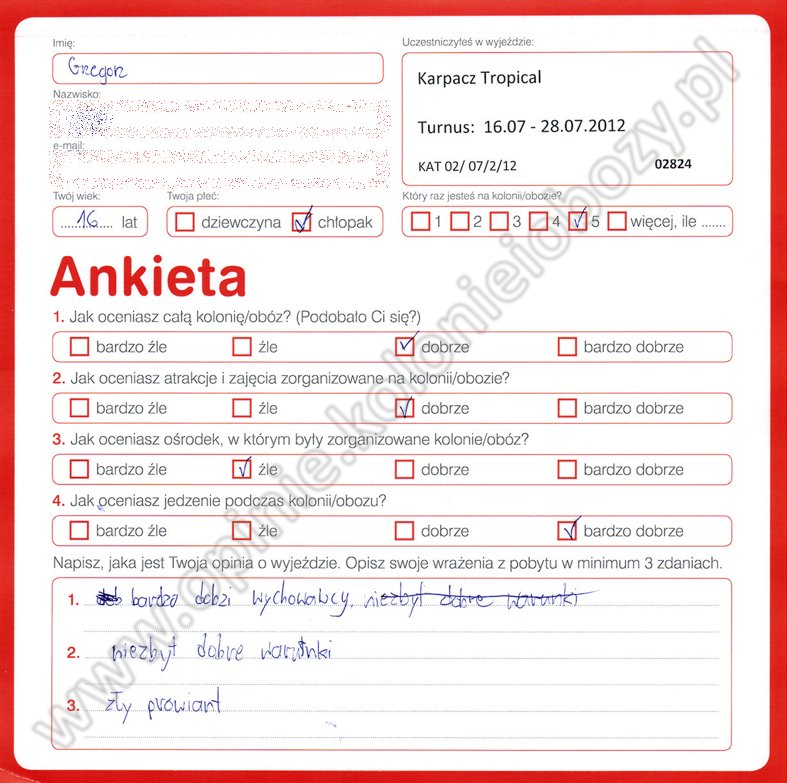 Imię:
Uczestniczyłeś w wyjeździe:
Gregor
Karpacz Tropical
Nazwisko:
Turnus: 16.07 - 28.07.2012
e-mail:
KAT 02/ 07/2/12 02824
Twój wiek: Twoja płeć: Który raz jesteś na kolonii/obozie?
16 lat dziewczyna chłopak 1 2 3 4 5 więcej, ile .......
Ankieta
1. Jak oceniasz całą kolonię/obóz? (Podobało Ci się?)
bardzo źle źle dobrze bardzo dobrze
2. Jak oceniasz atrakcje i zajęcia zorganizowane na kolonii/obozie?
bardzo źle źle dobrze bardzo dobrze
3. Jak oceniasz ośrodek, w którym były zorganizowane kolonie/obóz?
bardzo źle źle dobrze bardzo dobrze
4. Jak oceniasz jedzenie podczas kolonii/obozu?
bardzo źle źle dobrze bardzo dobrze
Napisz, jaka jest Twoja opinia o wyjeździe. Opisz swoje wrażenia z pobytu w minimum 3 zdaniach.
1. bardzo dobzi wychowawcy, niezbyt dobre warunki
2. niezbyt dobre warunki
3. zły prowiant
www.opinie.kolonieiobozy.pl